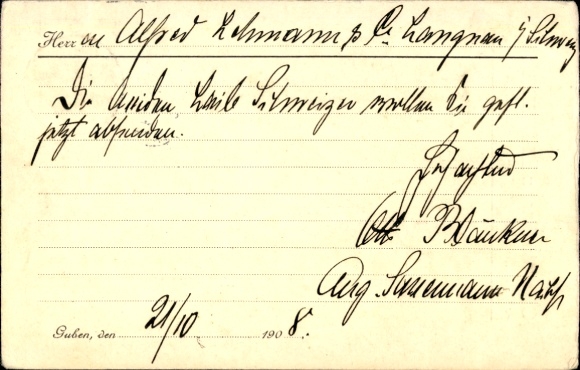 Herren Alfred Lehmann & Co Langnau i/Schweiz
Die beiden Laib Schweizer wollen Sie gefl.
jetzt absenden.
Hochachtend
Otto
Aug. Nachf
Guben, den 21/10 1908.